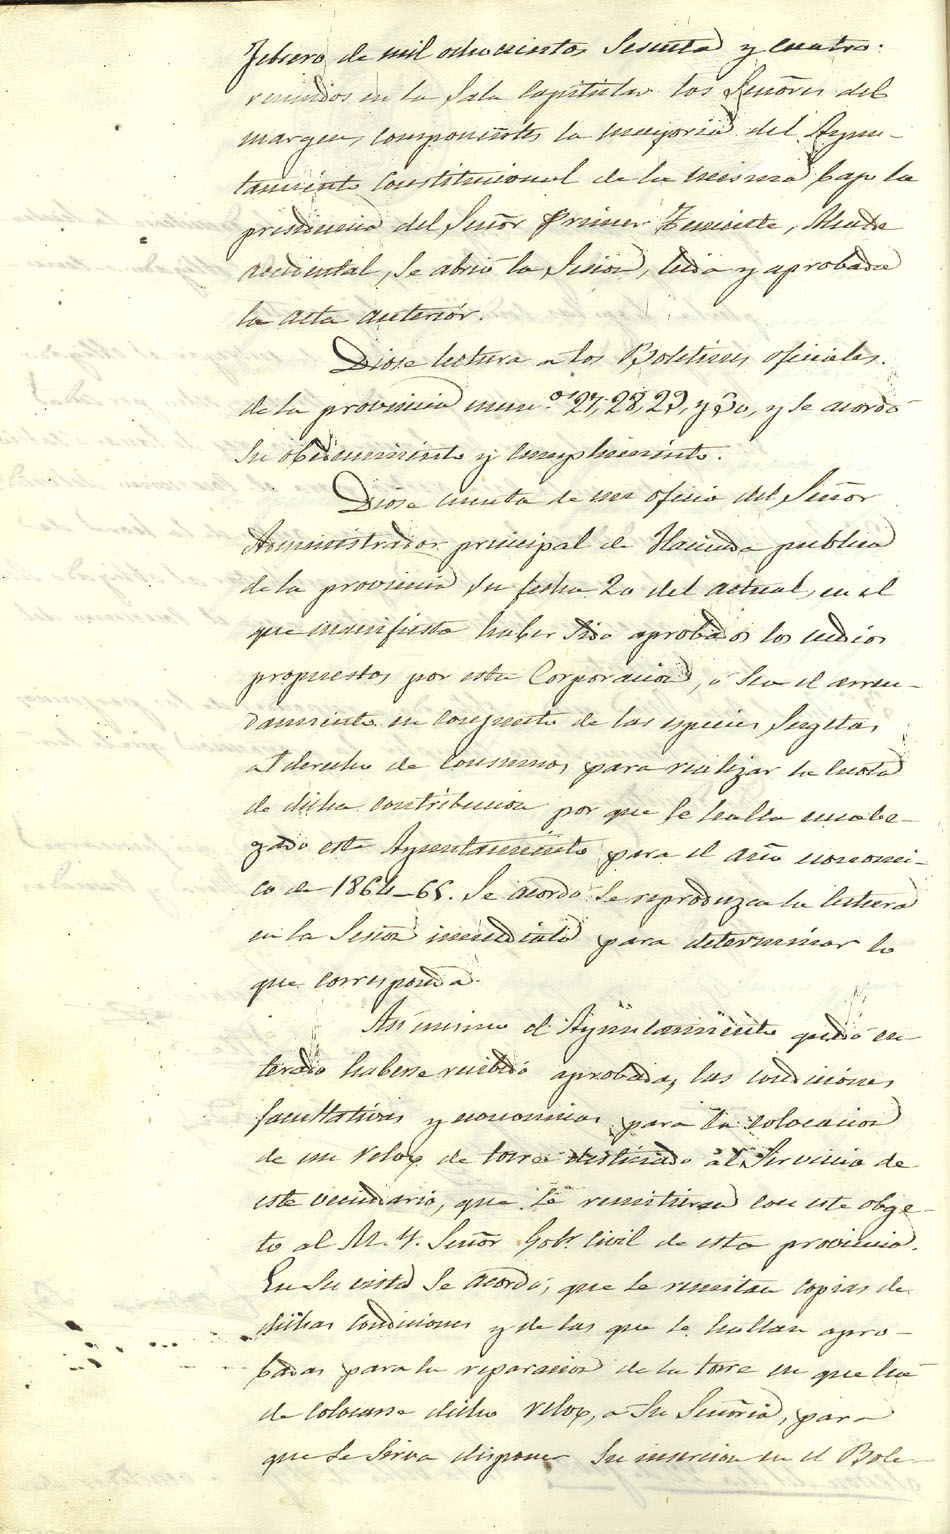 Febrero de mil ochocientos sesenta y cuatro:
reunidos en la Sala Capitular los Señores del
margen, componentes la mayoria del Ayun-
tamiento Constitucional de la misma bajo la
presidencia del Señor Primer Teniente, Alcalde
accidental, se abrió la Sesion, leida y aprobada
la acta anterior.
Diose lectura a los Boletines oficiales
de la provincia num.os 27, 28, 29, y 30, y se acordó
su obedecimiento y cumplimiento.
Diose cuenta de un oficio del Señor
Administrador principal de Hacienda publica
de la provincia su fecha 20 del actual, en el
que manifiesta haber sido aprobados los medios
propuestos por esta Corporacion, ó sea el arren-
damiento en conjunto de las especies sugetas
al derecho de consumos, para realizar la cuota
de dicha contribucion por que se halla encabe-
zado este Ayuntamiento para el año economi-
co de 1864-65. Se acordó se reproduzca la lectura
en la Sesion inmediata para determinar lo
que corresponda.
Asimismo el Ayuntamiento quedó en-
terado haberse recibido aprobadas, las condiciones
facultativas y economicas, para la colocacion
de un relox de torre destinado al Servicio de
este vecindario, que se remitieron con este obge-
to al M. Y. Señor Gobr. Civil de esta provincia.
En su vista se acordó, que se remitan copias de
dichas condiciones y de las que se hallan apro-
badas para la reparacion de la torre en que ha
de colocarse dicho relox, a Su Señoria, para
que se sirva disponer su insercion en el Bole-